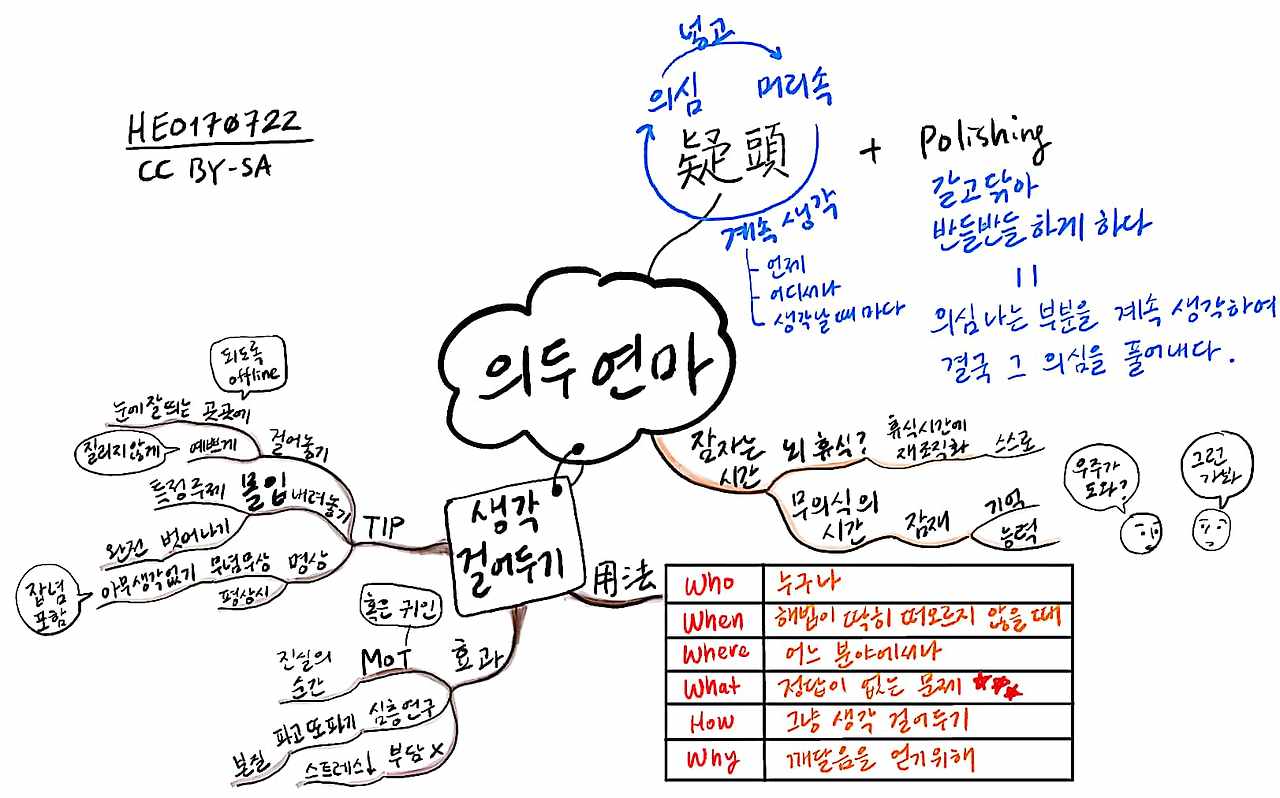 HE0170722
CC BY-SA
넣고
의심 머리속
疑頭
계속 생각
언제
어디서나
생각날 때 마다
+ Polishing
갈고닦아
반들반들하게 하다
=
의심나는 부분을 계속 생각하여
결국 그 의심을 풀어내다.
의두연마
잠자는
시간
뇌 휴식?
휴식시간에
재조직화
스스로
무의식의
시간
잠재
기억
능력
우주가
도와?
그런
가봐
생각
걸어두기
TIP
걸어놓기
눈에 잘 띄는 곳곳에
되도록
offline
예쁘게
질리지않게
내려놓기
몰입
특정주제
완전 벗어나기
명상
무념무상
아무생각없기
잡념
포함
평상시
효과
MOT
혹은 귀인
진실의
순간
심층연구
파고 또 파기
본질
부담 X
스트레스↓
用法
Who 누구나
When 해법이 딱히 떠오르지 않을 때
Where 어느 분야에서나
What 정답이 없는 문제 ★★★
How 그냥 생각 걸어두기
Why 깨달음을 얻기위해